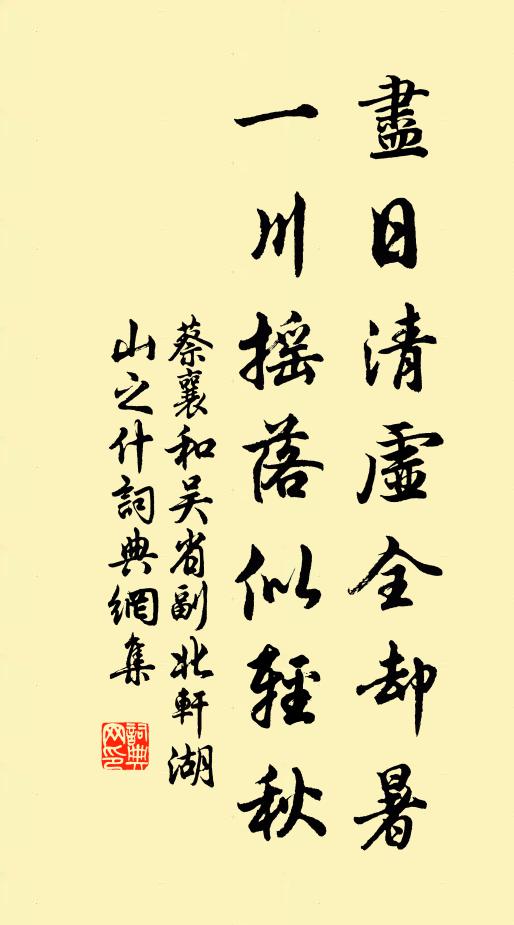 盡日清虛全却暑
一川摇落似輕秋
蔡襄和吴省副北軒湖
山之什詞典網集
詞典
網印